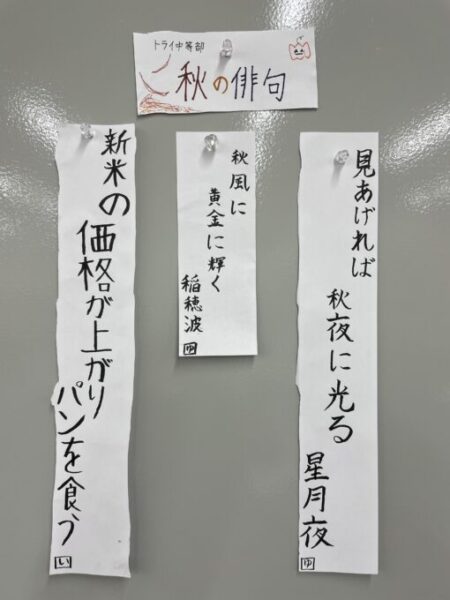 トライ中等部
秋の俳句
見あげれば
秋夜に光る
星月夜
ゆ
秋風に
黄金に輝く
稲穂波
ゆ
新米の
価格が上がり
パンを食う
い